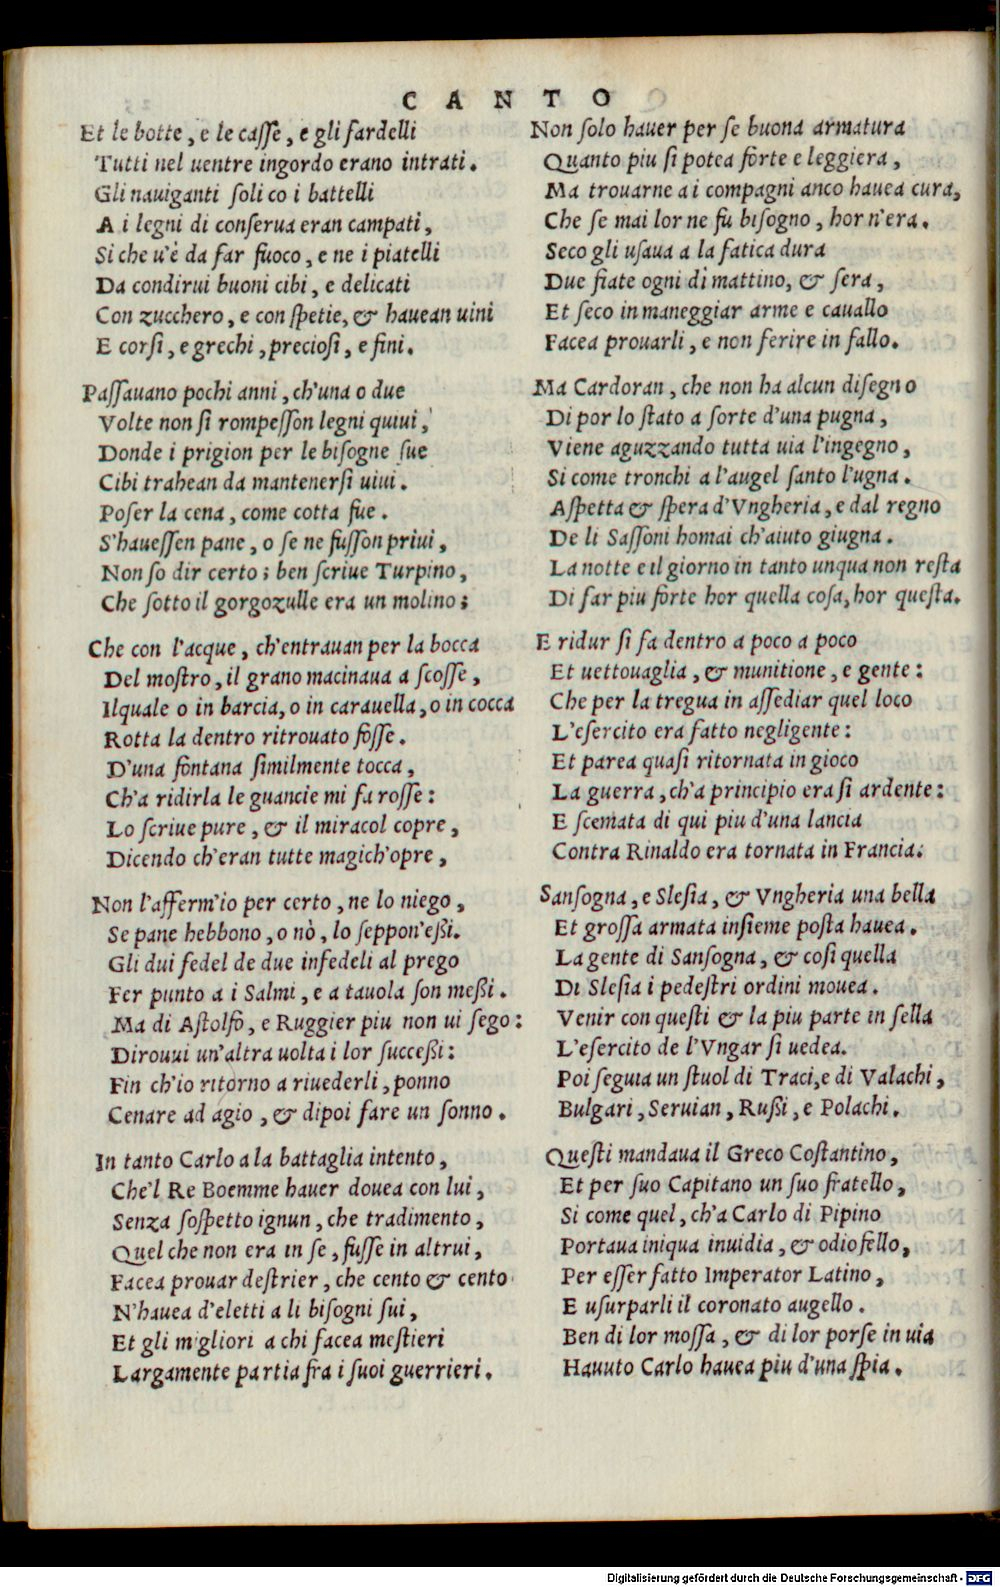 CANTO
Et le botte, e le casse, e gli fardelli
Tutti nel uentre ingordo erano intrati.
Gli nauiganti soli co i battelli
A i legni di conserua eran campati,
Si che u'è da far fuoco, e ne i piatelli
Da condirui buoni cibi, e delicati
Con zucchero, e con spetie, & hauean uini
E corsi, e grechi, preciosi, e fini.
Passauano pochi anni, ch'una o due
Volte non si rompesson legni quiui,
Donde i prigion per le bisogne sue
Cibi trahean da mantenersi uiui.
Poser la cena, come cotta fue.
S'hauessen pane, o se ne fusson priui,
Non so dir certo; ben scriue Turpino,
Che sotto il gorgozulle era un molino;
Che con l'acque, ch'entrauan per la bocca
Del mostro, il grano macinaua a scosse,
Ilquale o in barcia, o in carauella, o in cocca
Rotta la dentro ritrouato fosse.
D'una fontana similmente tocca,
Ch'a ridirla le guancie mi fa rosse:
Lo scriue pure, & il miracol copre,
Dicendo ch'eran tutte magich'opre,
Non l'afferm'io per certo, ne lo niego,
Se pane hebbono, o nò, lo seppon'eßi.
Gli dui fedel de due infedeli al prego
Fer punto a i Salmi, e a tauola son meßi.
Ma di Astolfo, e Ruggier piu non ui sego:
Dirouui un'altra uolta i lor succeßi:
Fin ch'io ritorno a riuederli, ponno
Cenare ad agio, & dipoi fare un sonno.
In tanto Carlo a la battaglia intento,
Che'l Re Boemme hauer douea con lui,
Senza sospetto ignun, che tradimento,
Quel che non era in se, fusse in altrui,
Facea prouar destrier, che cento & cento
N'hauea d'eletti a li bisogni sui,
Et gli migliori a chi facea mestieri
Largamente partia fra i suoi guerrieri.
Non solo hauer per se buona armatura
Quanto piu si potea forte e leggiera,
Ma trouarne a i compagni anco hauea cura,
Che se mai lor ne fu bisogno, hor n'era.
Seco gli usaua a la fatica dura
Due fiate ogni dì mattino, & sera,
Et seco in maneggiar arme e cauallo
Facea prouarli, e non ferire in fallo.
Ma Cardoran, che non ha alcun disegno
Di por lo stato a sorte d'una pugna,
Viene aguzzando tutta uia l'ingegno,
Si come tronchi a l'augel santo l'ugna.
Aspetta & spera d'Vngheria, e dal regno
De li Sassoni homai ch'aiuto giugna.
La notte e il giorno in tanto unqua non resta
Di far piu forte hor quella cosa, hor questa.
E ridur si fa dentro a poco a poco
Et uettouaglia, & munitione, e gente:
Che per la tregua in assediar quel loco
L'esercito era fatto negligente:
Et parea quasi ritornata in gioco
La guerra, ch'a principio era si ardente:
E scemata di qui piu d'una lancia
Contra Rinaldo era tornata in Francia.
Sansogna, e Slesia, & Vngheria una bella
Et grossa armata insieme posta hauea.
La gente di Sansogna, & cosi quella
Di Slesia i pedestri ordini mouea.
Venir con questi & la piu parte in sella
L'esercito de l'Vngar si uedea.
Poi seguia un stuol di Traci, e di Valachi,
Bulgari, Seruian, Rußi, e Polachi.
Questi mandaua il Greco Costantino,
Et per suo Capitano un suo fratello,
Si come quel, ch'a Carlo di Pipino
Portaua iniqua inuidia, & odio fello,
Per esser fatto Imperator Latino,
E usurparli il coronato augello.
Ben di lor mossa, & di lor porse in uia
Hauuto Carlo hauea piu d'una spia.
Digitalisierung gefördert durch die Deutsche Forschungsgemeinschaft - DFG